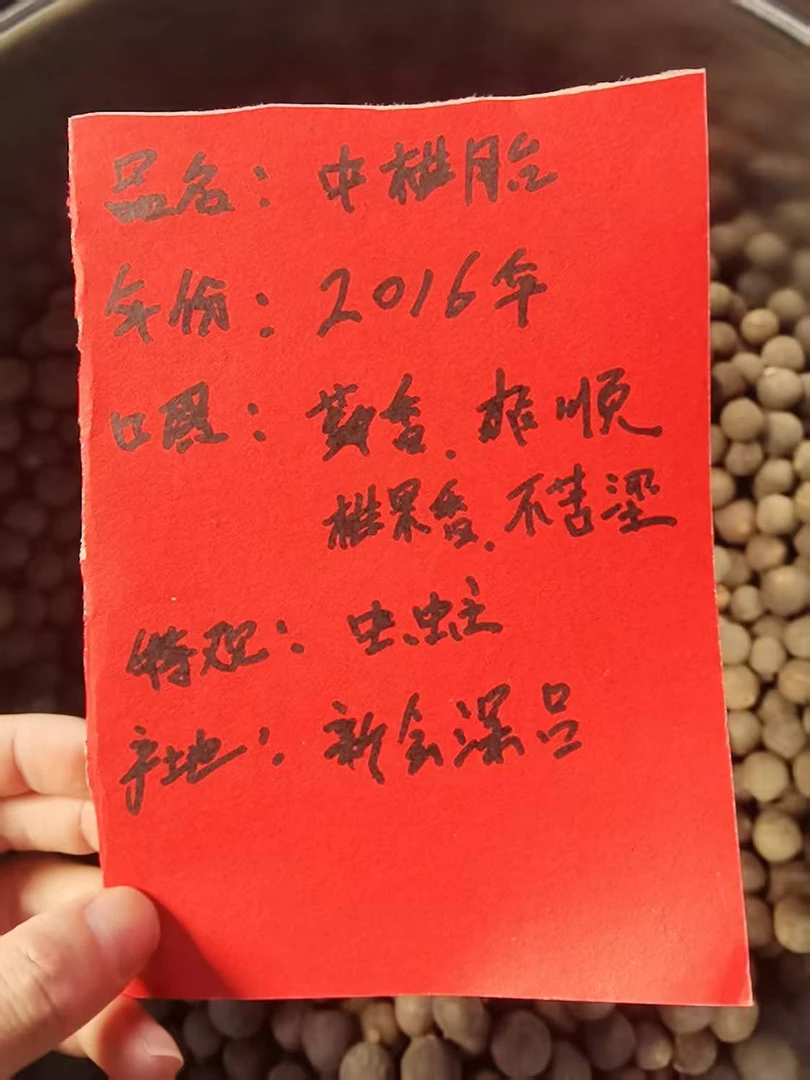 品名：中柑胎
年份：2016年
口感：香.顺
柑果香.不苦涩
特观：虫.虫蛀
产地：新会深吕